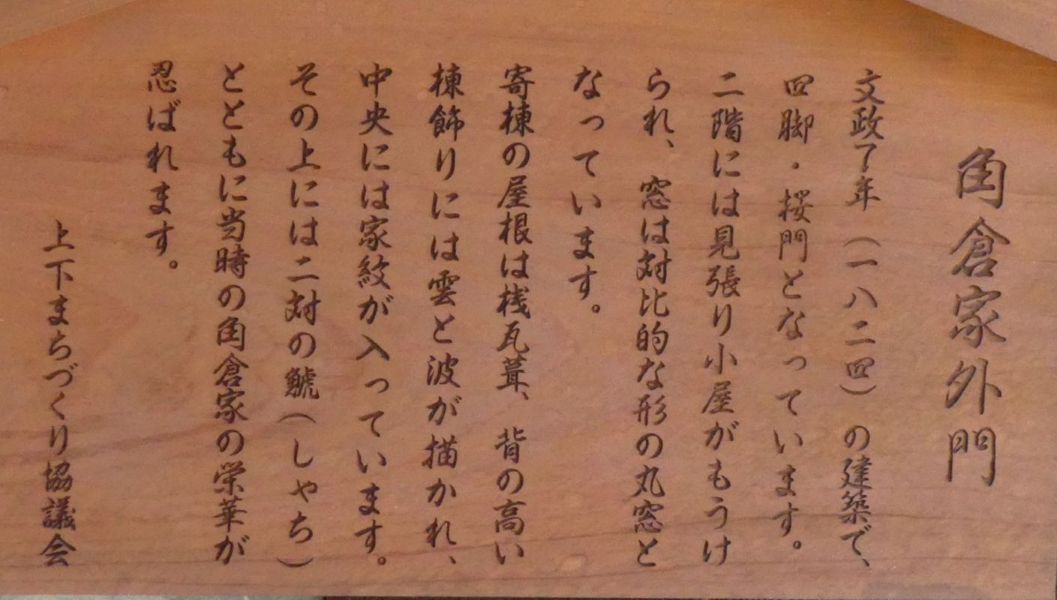 角倉家外門
文政7年（一八二四）の建築で、
四脚・桜門となっています。
二階には見張り小屋がもうけ
られ、窓は対比的な形の丸窓と
なっています。
寄棟の屋根は桟瓦葺、背の高い
棟飾りには雲と波が描かれ、
中央には家紋が入っています。
その上には二対の鯱（しゃち）
とともに当時の角倉家の栄華が
忍ばれます。
上下まちづくり協議会